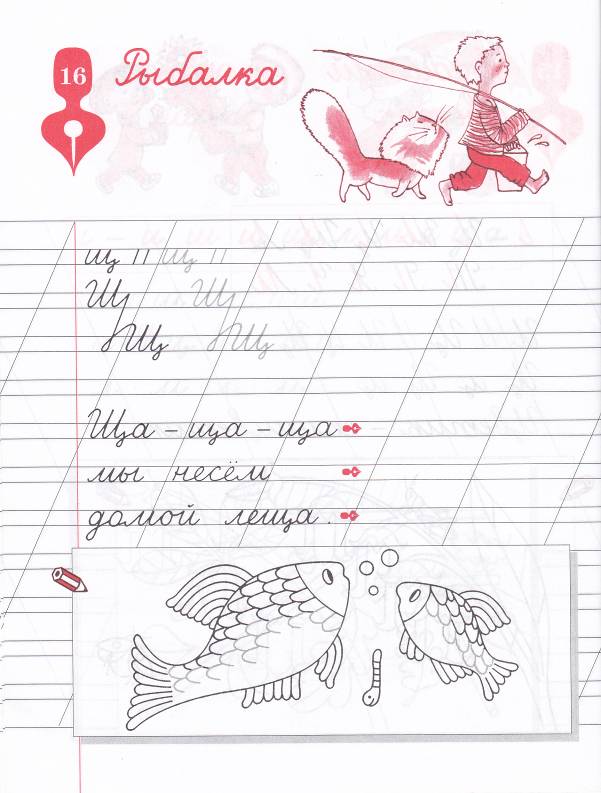 16 Рыбалка
щ щ
Щ Щ
Щ Щ
Ща – ща – ща
мы несём
домой леща.